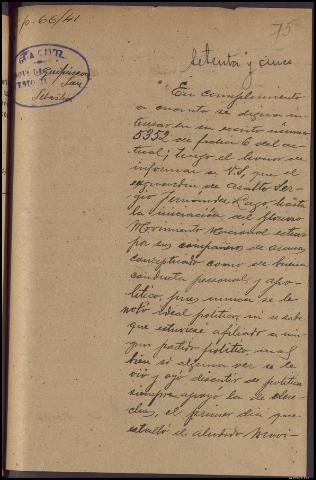 p-66/41
75
GUA CIVIL
Guipúzcoa
San
Sebastián
Setenta y cinco
En cumplimiento
a cuanto se digna in-
teresar en su escrito número
5352 de fecha 6 del ac-
tual; tengo el honor de
informar a V.S. que el
exguardia de Asalto Ser-
gio Fernández Lago, hasta
la iniciación del Glorioso
Movimiento Nacional estuvo
por sus compañeros de armas,
conceptuado como de buena
conducta personal, y apo-
lítico, pues nunca se le
notó ideal político, ni se sabe
que estuviese afiliado a nin-
gun partido político, mas
bien si alguna vez se le
vió y oyó discutir de política
siempre apoyó la de dere-
chas, el primer día que
estalló el aludido Movi-